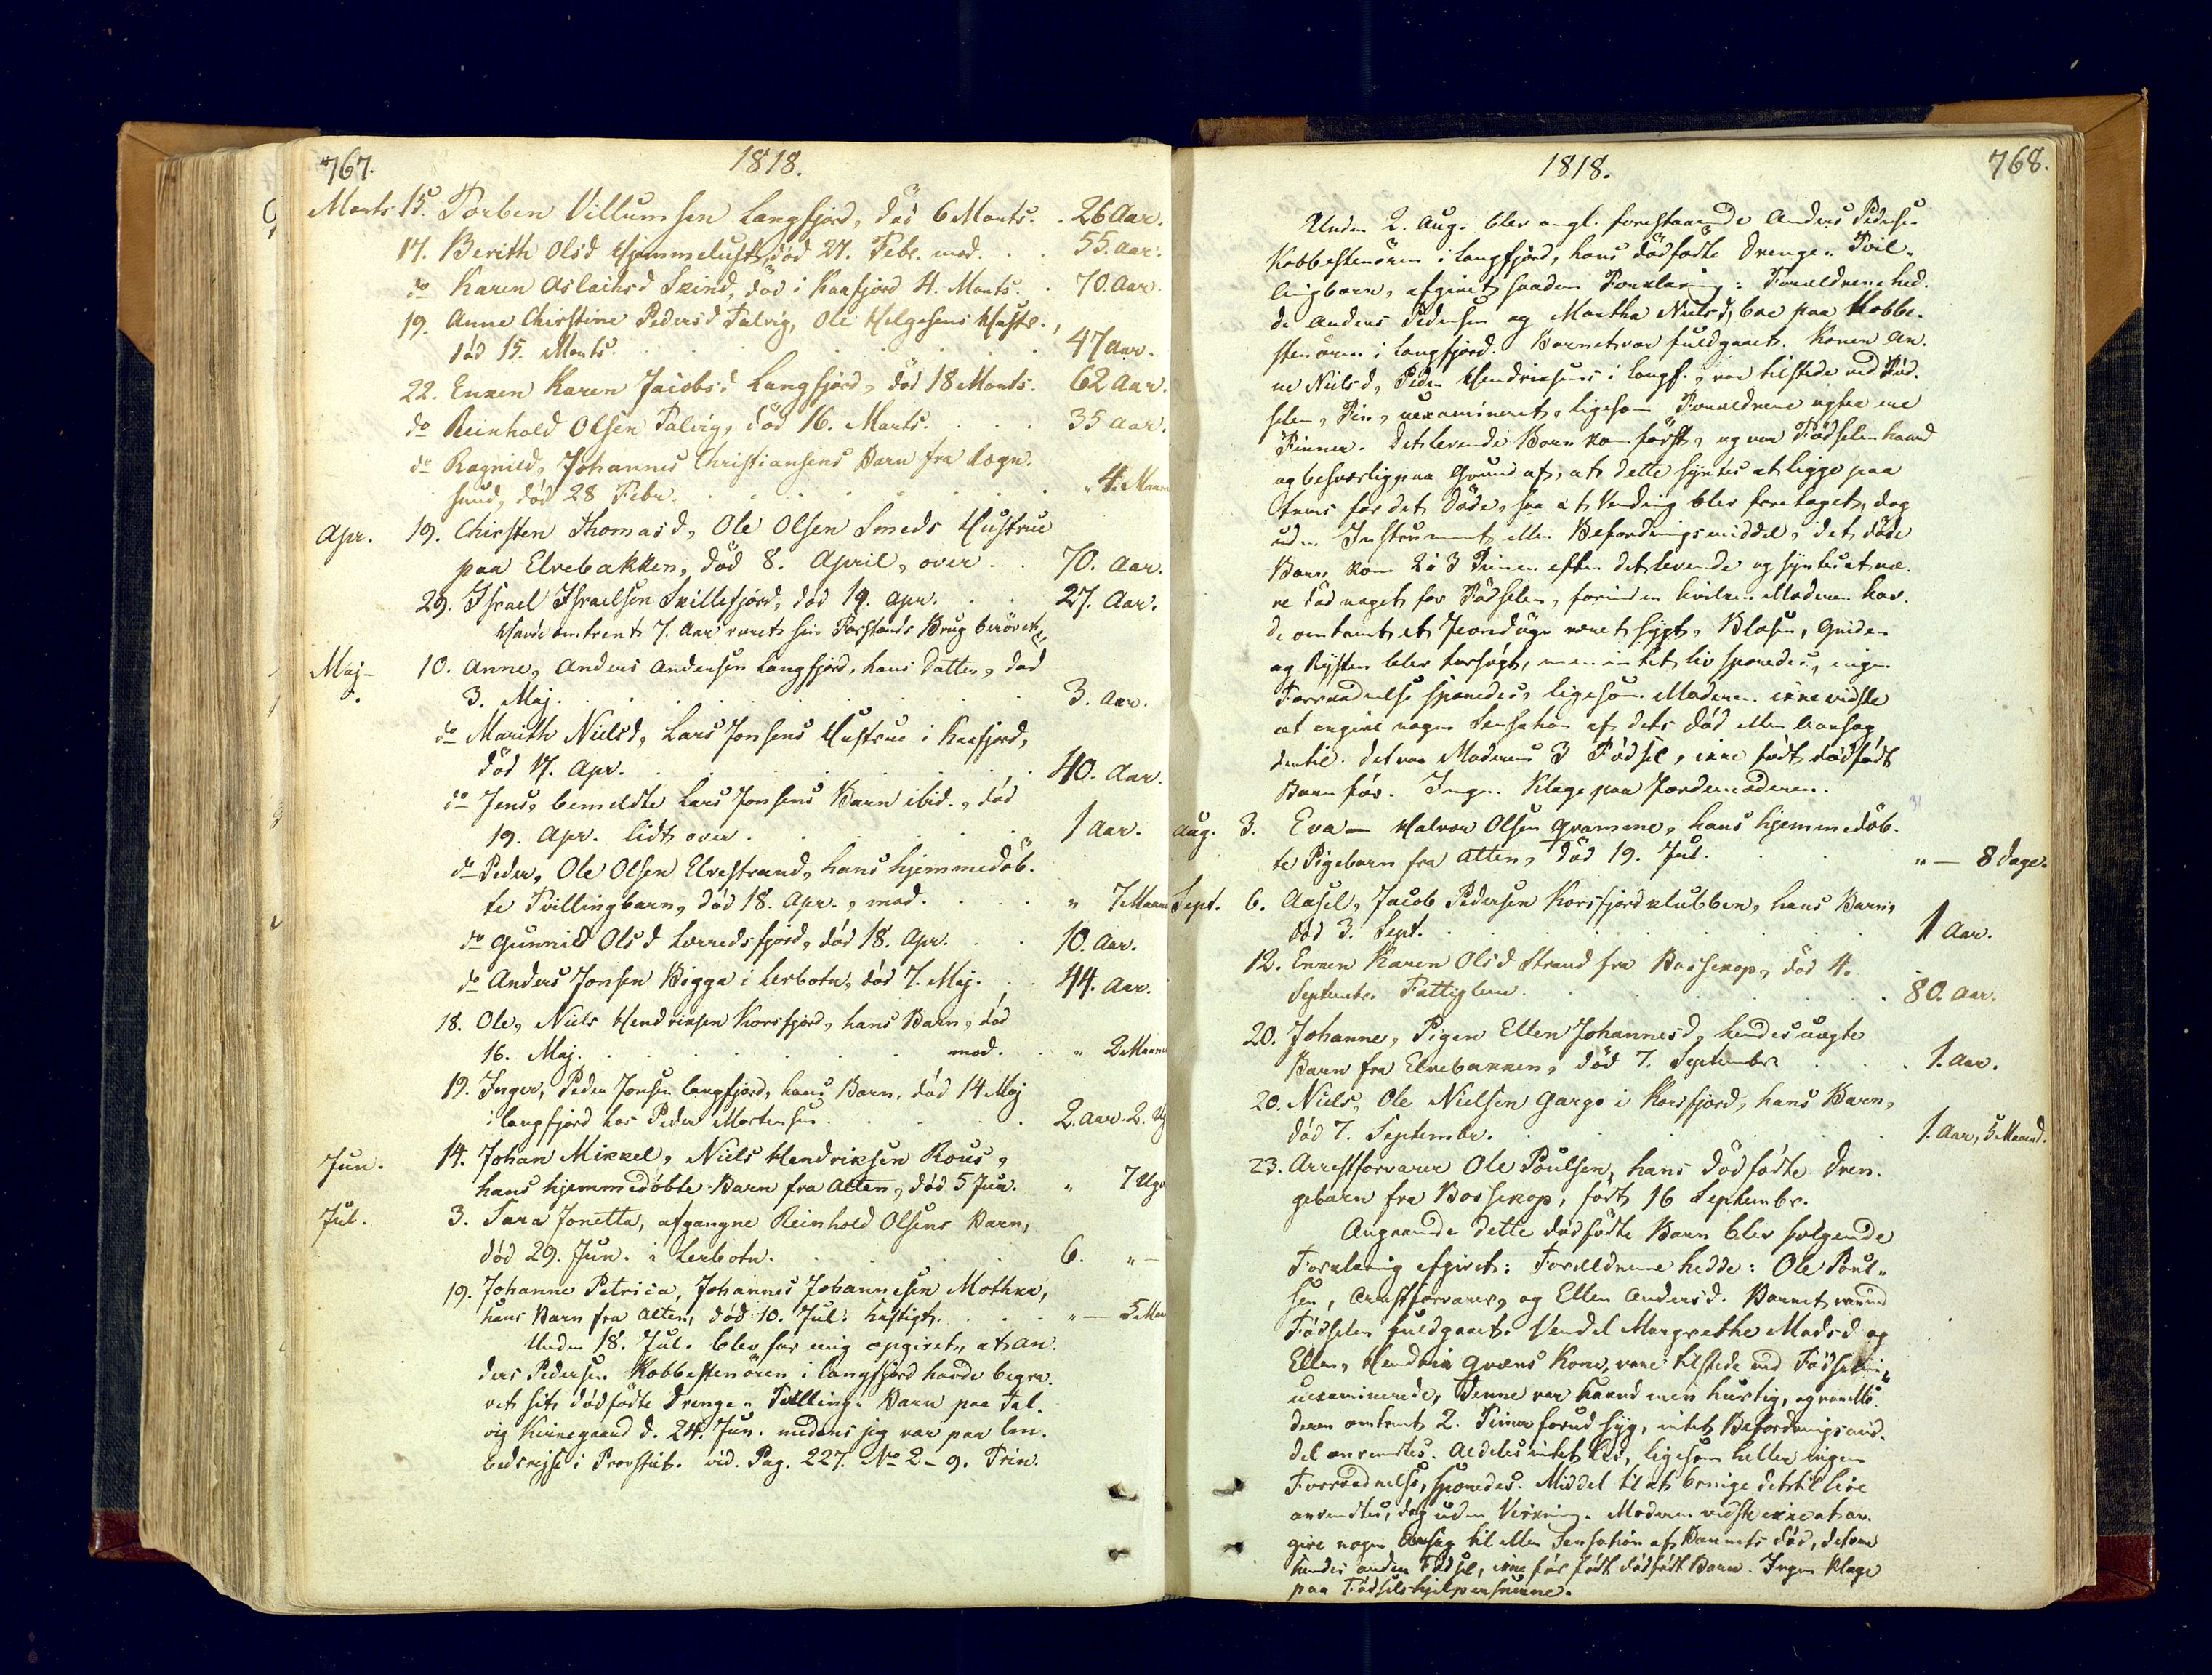 767. 1818.
Marts 15. Torben Villumsen Langfjord, död 6 Marts. . 26 Aar.
17. Berith Olsd Hjemmeluft, död 27. Febr. mod. . . 55. Aar.
do Karen Aslachsd Skind, död i Kaafjord 4. Marts. . 70. Aar.
19. Anne Chirstine Pedersd Talvig, Ole Helgesens Hustr.,
död 15. Marts. 47 Aar.
22. Enken Karen Jacobsd Langfjord, död 18 Marts. 62 Aar.
do Reinhold Olsen Talvig, död 16. Marts. 35 Aar.
do Ragnild, Johannes Christiansens Barn fra Rogn-
sund, död 28 Febr. " 4. Maan
Apr. 19. Chirsten Thomasd, Ole Olsen Smeds Hustrue
paa Elvebakken, död 8. April, over . . 70. Aar.
29. Israel Israelsen Skillefjord, död 19. Apr. . . 27. Aar.
Havde omtrent 7. Aar været sin Forstands Brug berövet.
Maj. 10. Anne, Anders Andersen Langfjord, hans Datter, död
3. Maj. 3. Aar.
do Marith Nielsd, Lars Jonsens Hustrue i Kaafjord,
död 17. Apr. 40. Aar.
do Jens, bemeldte Lars Jonsens Barn ibid., död
19. Apr. lidt over 1 Aar.
do Peder, Ole Olsen Elvestrand, hans hjemmedöb-
te Tvillingbarn, död 18. Apr., mod. " 7 Maan
do Gunnild Olsd Lerredsfjord, död 18. Apr. 10. Aar.
do Anders Jonsen Bigga i Lerbotn, död 7. Maj. 44. Aar.
18. Ole, Niels Hendriksen Korsfjord, hans Barn, död
16. Maj. mod. " 2 Maan
19. Inger, Peder Jonsen Langfjord, hans Barn, död 14 Maj
i Langfjord hos Peder Mortensen. 2. Aar. 2. Ug
Jun. 14. Johan Mikkel, Niels Hendriksen Rous,
hans hjemmedöbte Barn fra Alten, död 5 Jun. " 7 Uge
Jul. 3. Sara Jonetta, afgangne Reinhold Olsens Barn,
död 29. Jun. i Lerbotn. 6. " —
19. Johanne Petrica, Johannes Johannesen Mothka,
hans Barn fra Alten, död 10. Jul. hastigt. " — 5 Maa
Under 18. Jul. blev for mig opgivet, at An-
ders Pedersen Kobbestenören i Langfjord havde begra-
vet sit dödfödte Drenge-Tvilling-Barn paa Tal-
vig Kirkegaard d. 24. Jun. medens jeg var paa Em-
bedsrejse i Provstiet. vid. Pag. 227. No 2 - 9. Trin.
1818. 768.
Under 2. Aug. blev angl. forestaaende Anders Pedersen
Kobbestenören i Langfjord, hans dödfödte Drenge-Tvil-
lingbarn, afgivet saadan Forklaring: Forældrene hed-
de Anders Pedersen og Martha Nielsd, boe paa Kobbe-
stenören i Langfjord. Barnet var fuldgaaet. Konen An-
ne Nielsd, Peder Hendriksens i Langf., var tilstede ved Föd-
selen, uexamineret, ligesom Forældrene ogsaa ere
Finner. Det levende Barn kom först, og var Födselen haard
og besværlig paa Grund af, at dette syntes at ligge paa
tvers for det döde, saa at Vending blev foretaget, dog
uden Instrument eller Befordringsmiddel, det döde
Barn kom 2 à 3 Timer efter det levende og syntes at væ-
re död noget for Födselen, forinden hvilken Moderen hav-
de omtrent et Jevndögn været sygt. Blæsen, Gniden
og Rysten blev forsögt, men intet Liv sporedes, ingen
Forraadnelse sporedes, ligesom Moderen ikke vidste
at angive nogen Sensation af dets Död eller Aarsag
dertil. Det var Moderens 3 Födsel, ikke födt dödfödt
Barn för. Ingen Klage paa Jordemoderen.
Aug. 3. Eva - Halvor Olsen Gramme, hans hjemmedöb-
te Pigebarn fra Alten, död 19. Jul. " — 8 Dage.
Sept. 6. Aasel, Jacob Pedersen Korsfjordklubben, hans Barn,
död 3. Sept. 1 Aar.
12. Enken Karen Olsd Strand fra Bossekop, död 4.
Septembr. Fattiglem. 80. Aar.
20. Johanne, Pigen Ellen Johannesd, hendes uægte
Barn fra Elvebakken, död 7. Septembr. 1. Aar.
20. Niels, Ole Nielsen Gargo i Korsfjord, hans Barn,
död 7. Septembr. 1. Aar, 5 Maaned.
23. Arrestforvarer Ole Poulsen, hans dödfödte Dren-
gebarn fra Bossekop, födt 16 Septembr.
Angaaende dette dödfödte Barn blev fölgende
Forklaring afgivet: Forældrene hedde: Ole Poul-
sen, Arrestforvarer, og Ellen Andersd. Barnet var ved
Födselen fuldgaaet. Vendel Margrethe Madsd og
Ellen, Hendrik Qvæns Kone, vare tilstede ved Födselen,
uexaminerede, denne var haard men hurtig, og var Mo-
deren omtrent 2. Timer forud syg, intet Befordringsmid-
del anvendtes. Aldeles intet Liv, ligesom heller ingen
Forraadnelse, sporedes. Middel til at bringe det til Live
anvendtes, dog uden Virkning. Moderen vidste ikke at an-
give nogen Aarsag til eller Sensation af Barnets Död, det var
hendes anden Födsel, ikke för födt dödfödt Barn. Ingen Klage
paa Födselshjelperskerne.